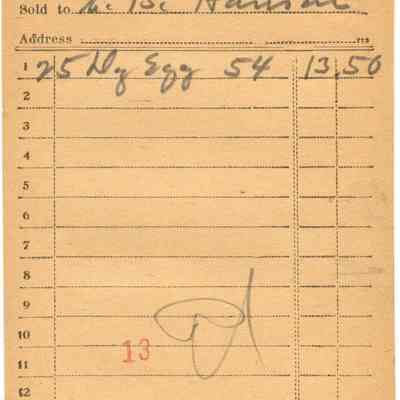 Sold to M. B. Hansen
Address
1 25 Dz Egg 54 13.50
2
3
4
5
6
7
8
9
10
13
11
12